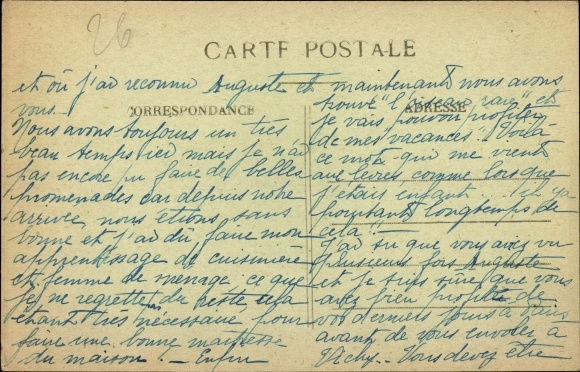 26
CARTE POSTALE
CORRESPONDANCE
ADRESSE
et où j'ai reconnu Auguste et
vous.
Nous avons toujours un très
beau temps ici mais je n'ai
pas encore pu faire de belles
promenades car depuis notre
arrivée nous étions sans
bonne et j'ai dû faire mon
apprentissage de cuisinière
et femme de ménage, ce que
je ne regrette du reste cela
étant très nécessaire pour
faire une bonne maîtresse
de maison! - Enfin
maintenant nous avons
trouvé "l'oiseau rare" et
je vais pouvoir profiter
de mes "vacances"! Voilà
ce mot qui me vient
aux lèvres comme lorsque
j'étais enfant il y a
pourtant longtemps de
cela!
J'ai su que vous aviez vu
plusieurs fois Auguste
et je suis sûre que vous
avez bien profité de
vos derniers jours à
avant de vous envoler à
Vichy. - Vous devez être